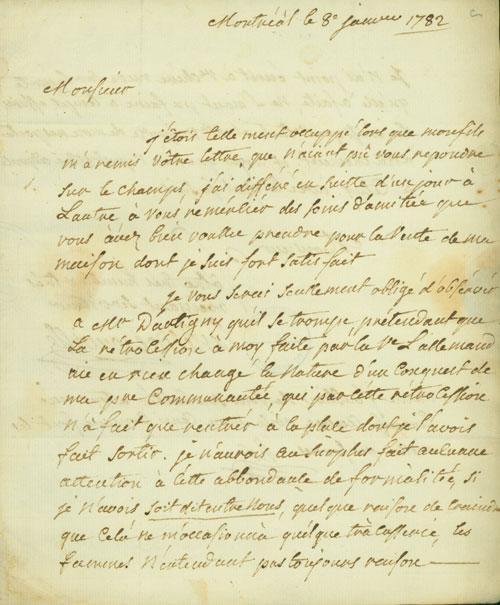 Montréal le 8e janvier 1782
Monsieur
j'étois telle ment occuppé lors que mon fils
m'a remis votre lettre, que n'aiant pû vous repondre
sur le champs, j'ai différé en suitte d'un jour à
L'autre à vous remércier des soins d'amitiée que
vous avéz bien voullu prendre pour la Vente de ma
maison dont je suis fort satisfait
je vous serai seulement obligé d'obsérvér
a Mr Dartigny qu'il se trompe prétendant que
La rétrocession à moy faite par la Ve Lallemand
aie en rien changé la Nature d'un Conquest de
ma pre Communautée, qui par cette rétrocession
n'à fait que rentrér à la place dont je l'avois
fait sortir. je n'aurois au surplus fait aucune
attention à Cette abbondance de formalitée, si
je n'avois soit dit entre Nous, quelque raison de craindre
que Cela ne m'occasionnà quelque tràcasserie, les
femmes N'entendant pas toujours raison